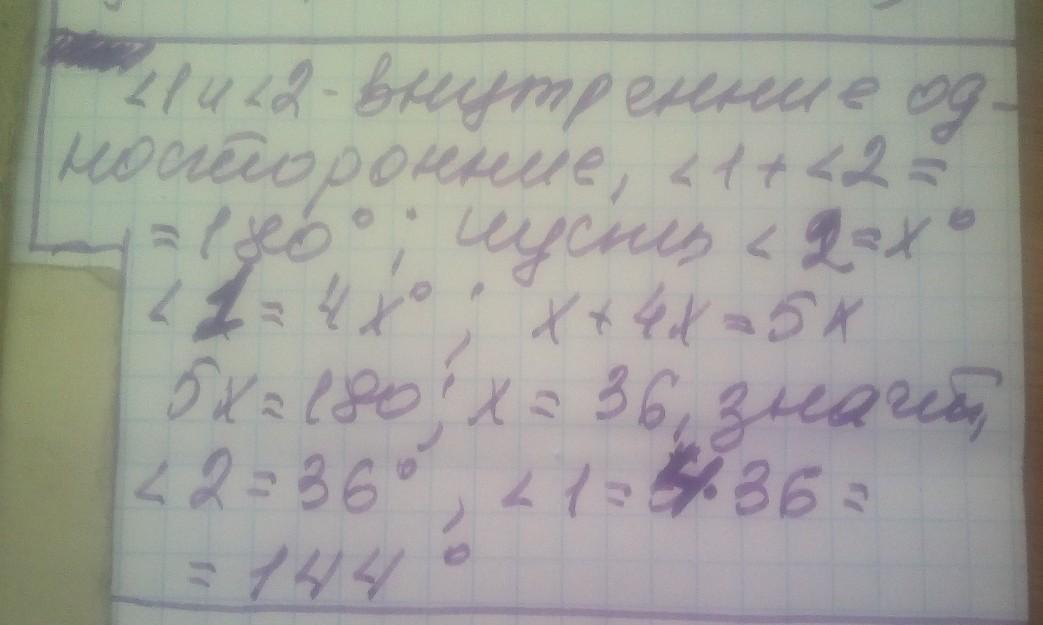 ∠1 и ∠2 - внутренние од-
носторонние, ∠1 + ∠2 =
= 180°; пусть ∠2 = x°
∠1 = 4x°; x + 4x = 5x
5x = 180; x = 36, значит,
∠2 = 36°, ∠1 = 4·36 =
= 144°